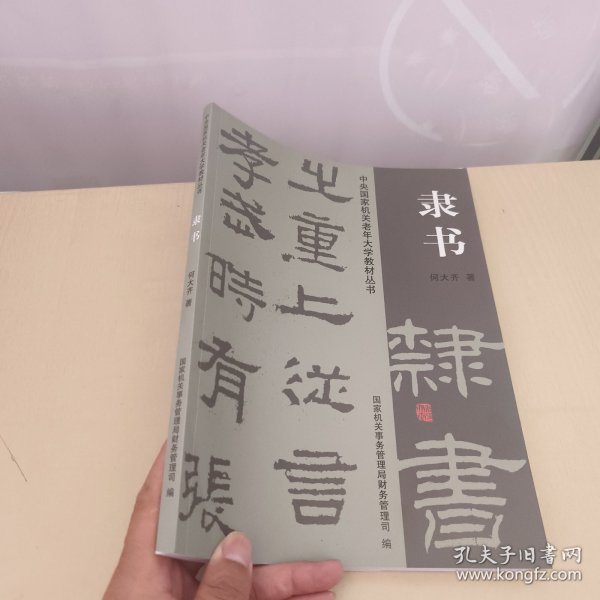 隶书
何大齐 著
隸書
中央国家机关老年大学教材丛书
国家机关事务管理局财务管理司 编
之重上従言
孝武時有張
中央国家机关老年大学教材丛书
隶书
何大齐 著
国家机关事务管理局财务管理司 编
孔夫子旧书网
www.kongfz.com